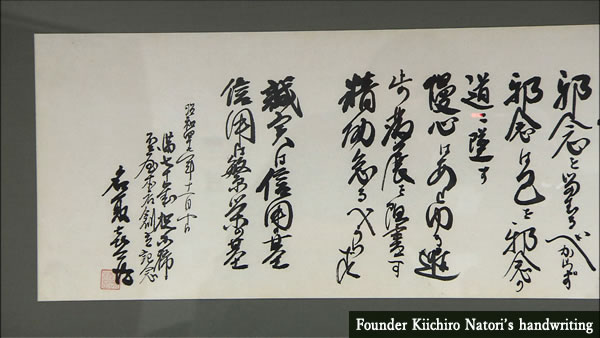 邪念を留むるべからず
邪念は己を邪念の
道ニ堕す
慢心はあと
発展を阻害す
精励怠るべからず
誠実は信用基
信用は繁栄の基
昭和四十年十一月十日
満七十
創立記念
名取喜一郎
Founder Kiichiro Natori's handwriting